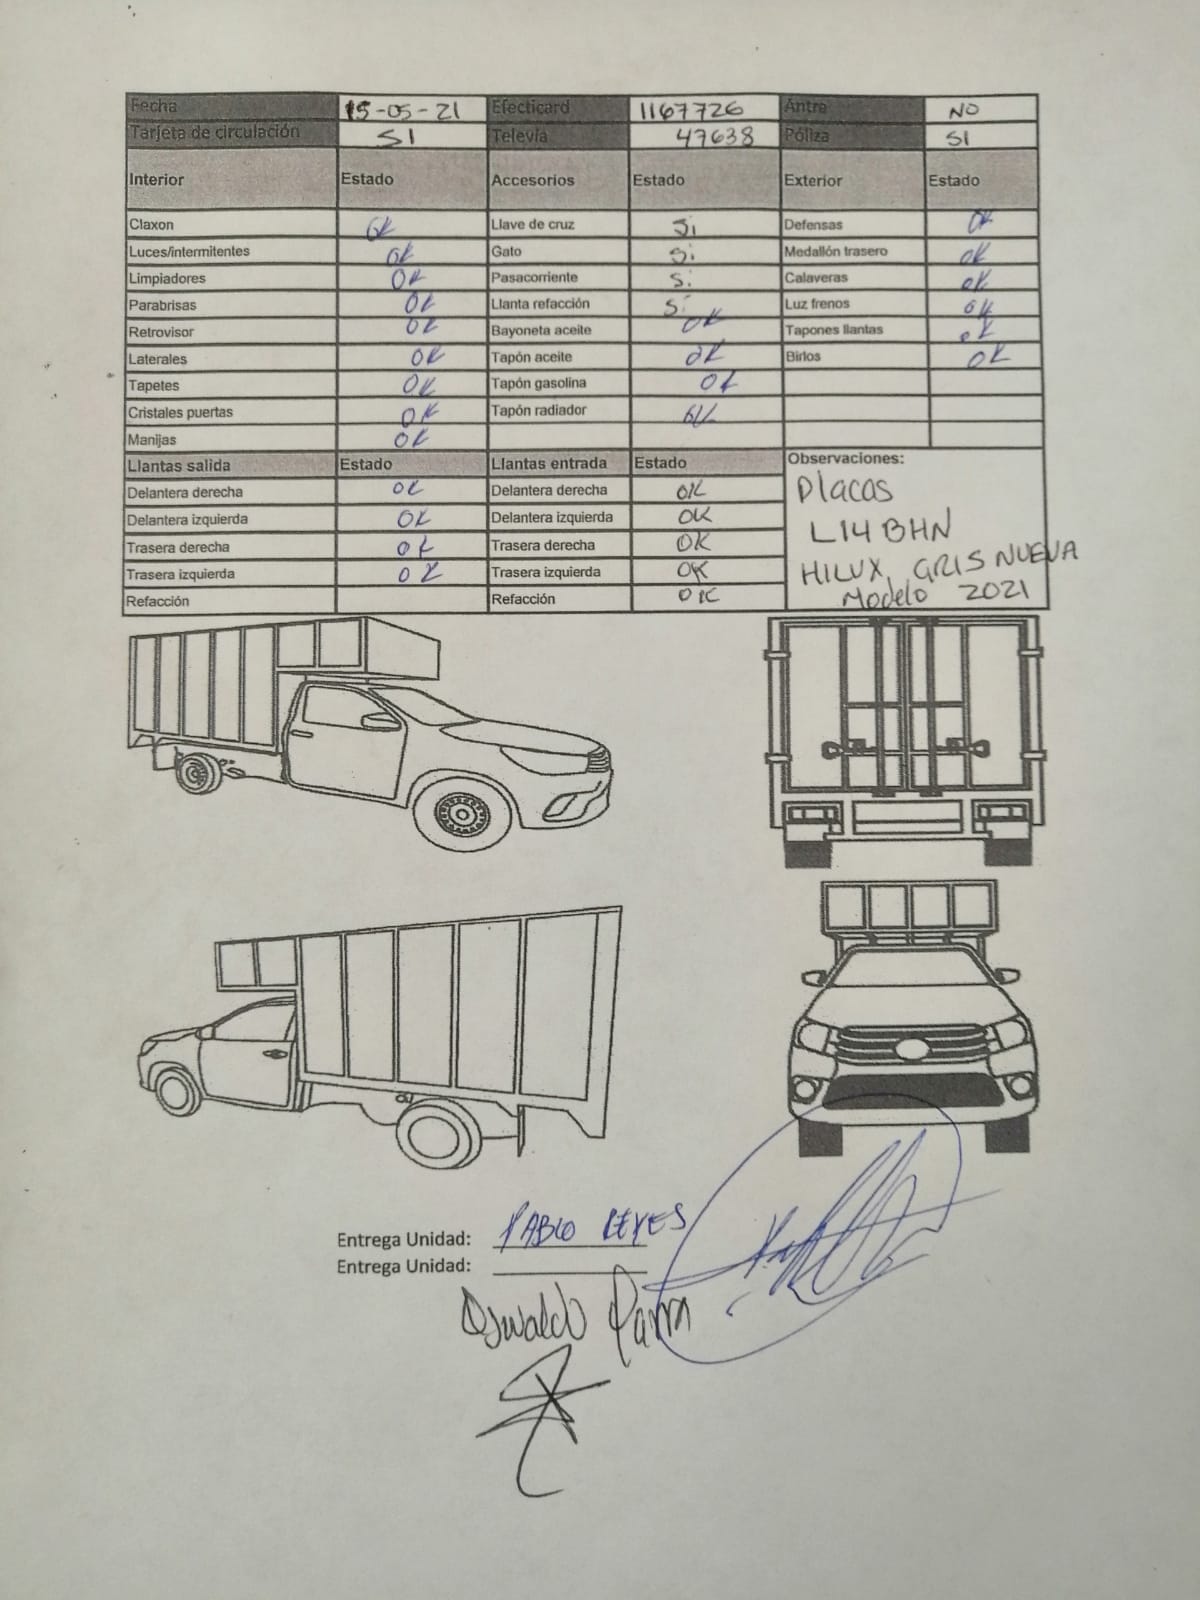 Fecha 15-05-21 Efecticard 1167726 Antra NO
Tarjeta de circulación SI Televía 47638 Póliza SI
Interior Estado Accesorios Estado Exterior Estado
Claxon OK Llave de cruz Si Defensas OK
Luces/intermitentes OK Gato Si Medallón trasero OK
Limpiadores OK Pasacorriente Si Calaveras OK
Parabrisas OK Llanta refacción Si Luz frenos OK
Retrovisor OK Bayoneta aceite OK Tapones llantas OK
Laterales OK Tapón aceite OK Birlos OK
Tapetes OK Tapón gasolina OK
Cristales puertas OK Tapón radiador OK
Manijas OK
Llantas salida Estado Llantas entrada Estado Observaciones:
Delantera derecha OK Delantera derecha OK Placas
Delantera izquierda OK Delantera izquierda OK L14BHN
Trasera derecha OK Trasera derecha OK HILUX GRIS NUEVA
Trasera izquierda OK Trasera izquierda OK Modelo 2021
Refacción Refacción OK
Entrega Unidad: PABLO REYES
Entrega Unidad:
Oswaldo Parra